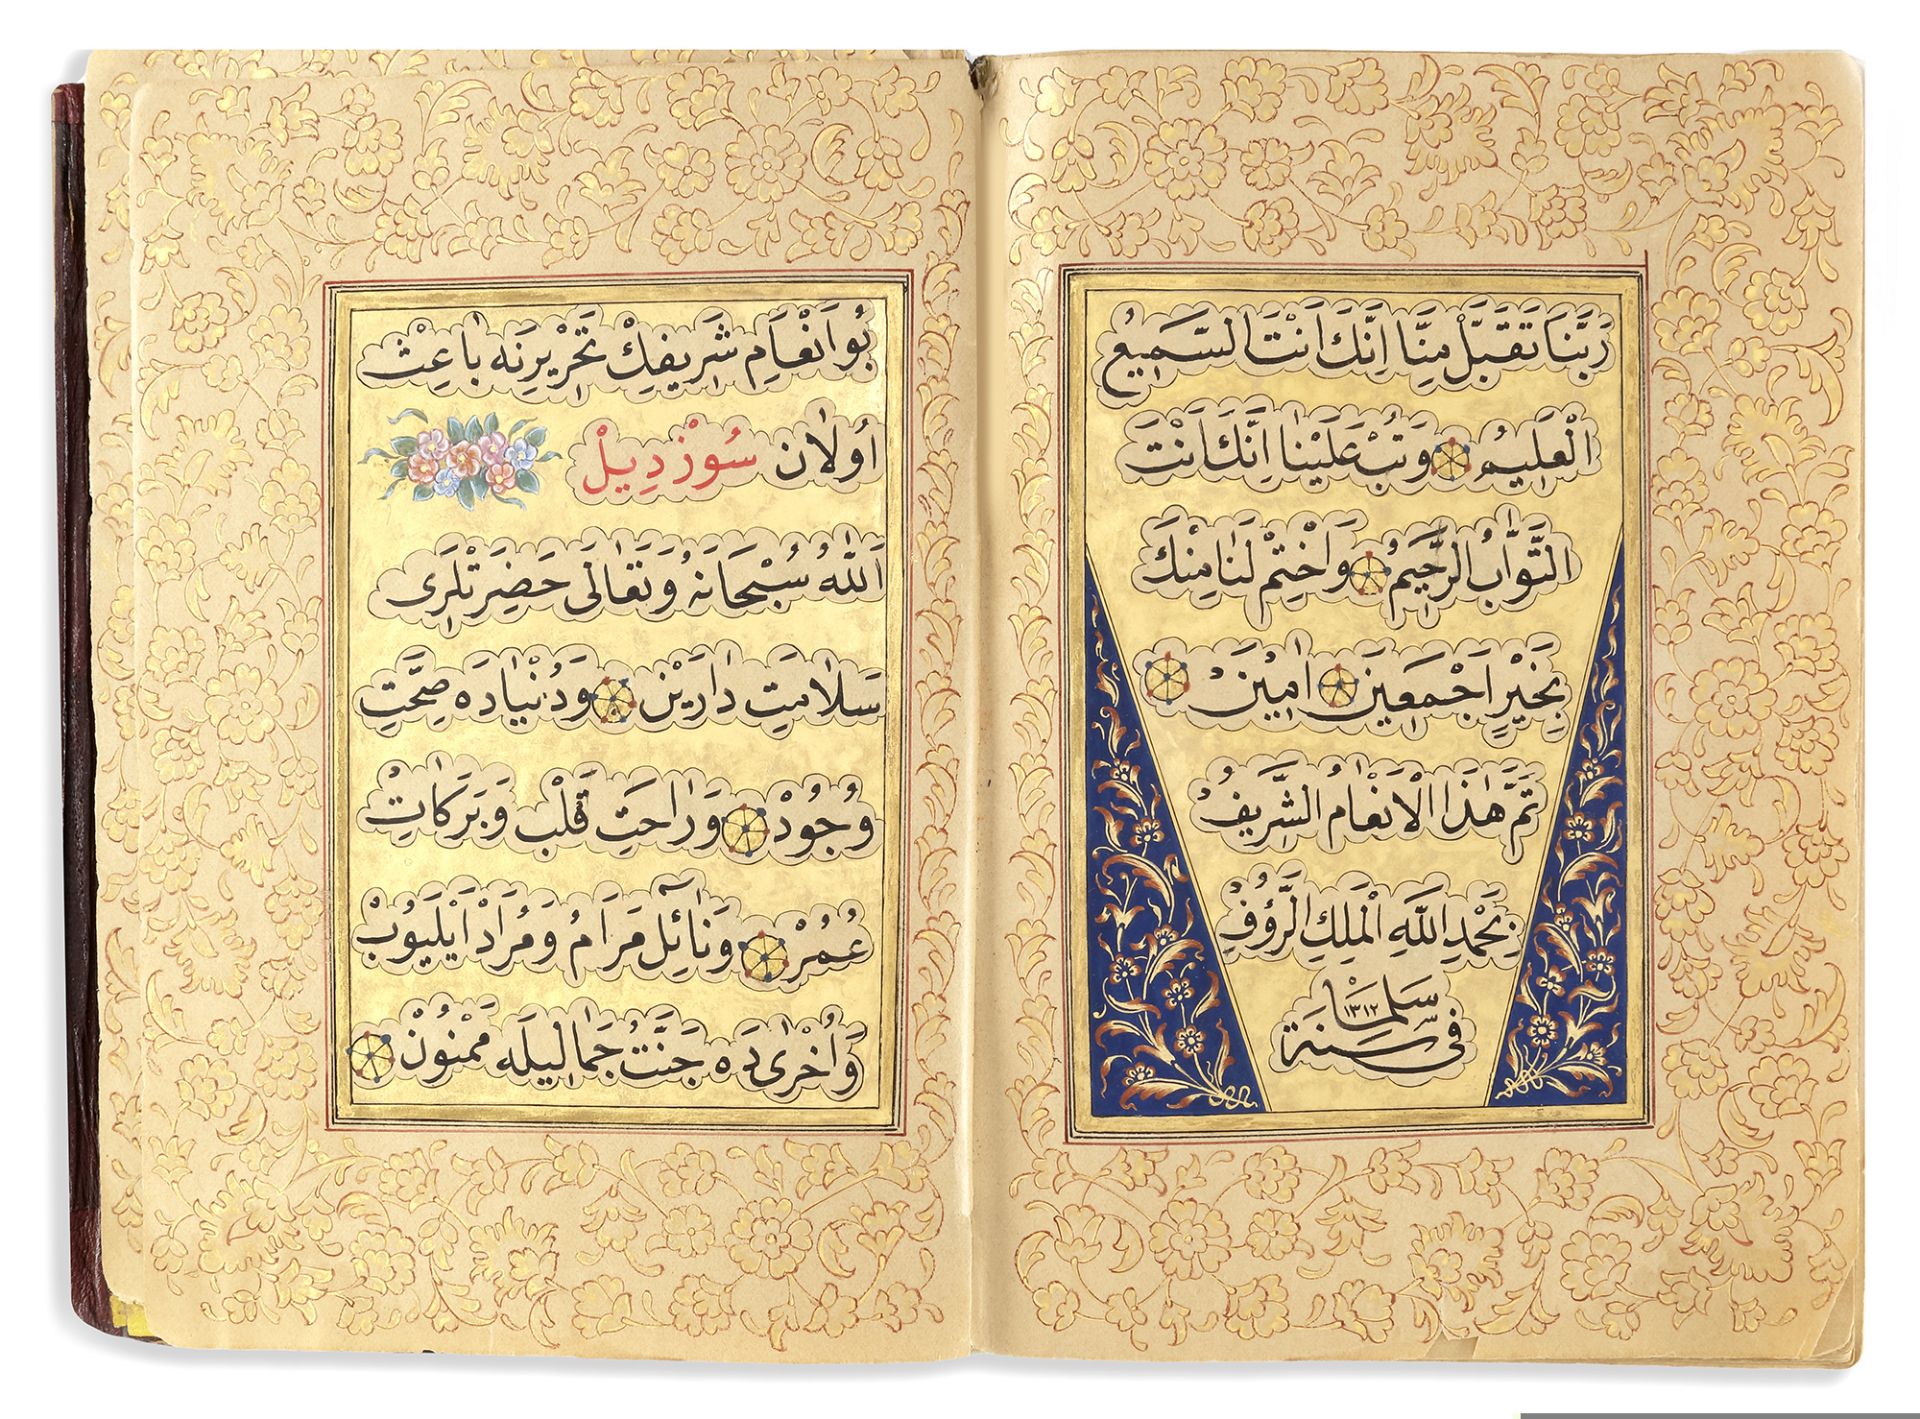 رَبَّنَا تَقَبَّلْ مِنَّا اِنَّكَ اَنْتَ السَّمٖيعُ
الْعَلٖيمُ وَتُبْ عَلَيْنَا اِنَّكَ اَنْتَ
التَّوَّابُ الرَّحٖيمُ وَاخْتِمْ لَنَا مِنْكَ
بِخَيْرٍ اَجْمَعٖينَ اٰمٖينَ
تَمَّ هٰذَا الْاَنْعَامُ الشَّرٖيفُ
بِحَمْدِ اللّٰهِ الْمَلِكِ الرَّؤُفِ
سَلْمَا
فى سنة ١٣١٢
بُو اَنْعَامِ شَرٖيفِكْ تَحْرٖيرِنَه بَاعِثْ
اُولَان سُوزْدِيلْ
اَللّٰهُ سُبْحَانَهُ وَتَعَالٰى حَضِرَتْلَرٖى
سَلَامَتِ دَارَيْنْ وَدُنْيَادَه صِحَّتِ
وُجُودْ وَرَاحَتِ قَلْب وَبَرَكَاتِ
عُمُرْ وَنَائِلِ مَرَامُ وَمُرَادْ اَيْلَيُوبْ
وَاُخْرٰى دَه جَنَّتْ جَمَالِيلَه مَمْنُونْ